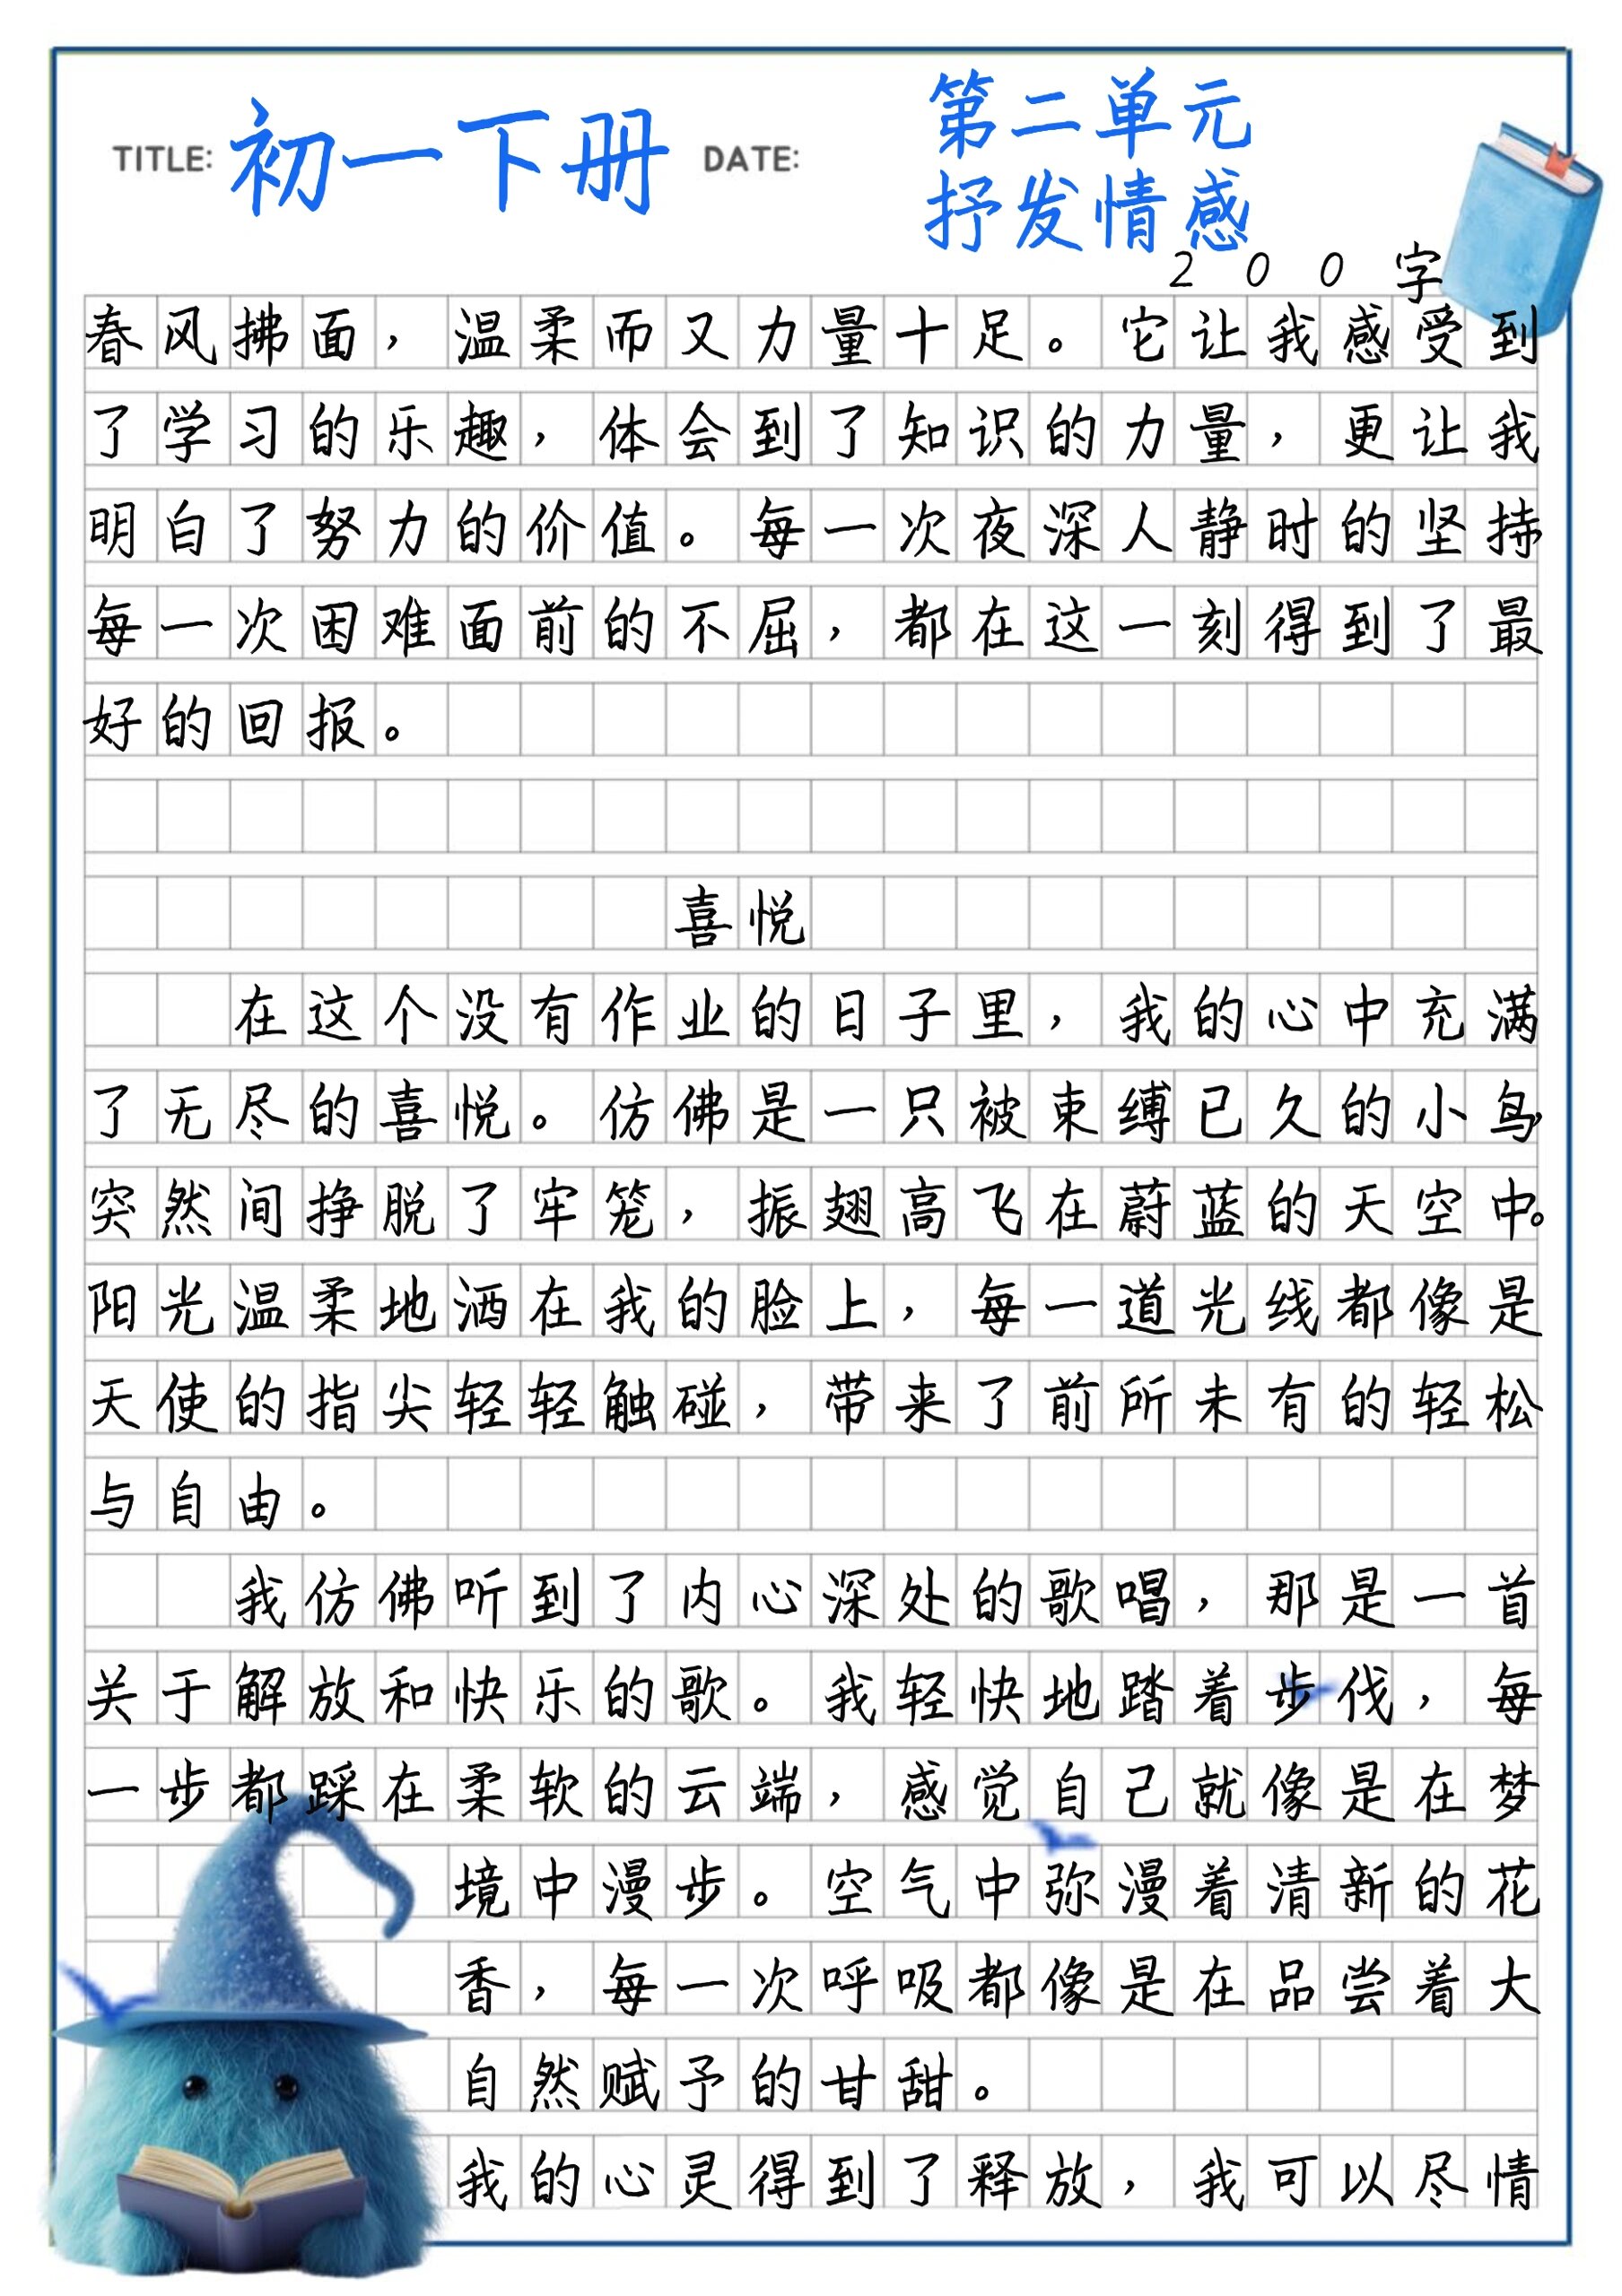 TITLE: 初一下册 DATE: 第二单元
抒发情感
200字
春风拂面，温柔而又力量十足。它让我感受到
了学习的乐趣，体会到了知识的力量，更让我
明白了努力的价值。每一次夜深人静时的坚持
每一次困难面前的不屈，都在这一刻得到了最
好的回报。
喜悦
在这个没有作业的日子里，我的心中充满
了无尽的喜悦。仿佛是一只被束缚已久的小鸟，
突然间挣脱了牢笼，振翅高飞在蔚蓝的天空中。
阳光温柔地洒在我的脸上，每一道光线都像是
天使的指尖轻轻触碰，带来了前所未有的轻松
与自由。
我仿佛听到了内心深处的歌唱，那是一首
关于解放和快乐的歌。我轻快地踏着步伐，每
一步都踩在柔软的云端，感觉自己就像是在梦
境中漫步。空气中弥漫着清新的花
香，每一次呼吸都像是在品尝着大
自然赋予的甘甜。
我的心灵得到了释放，我可以尽情